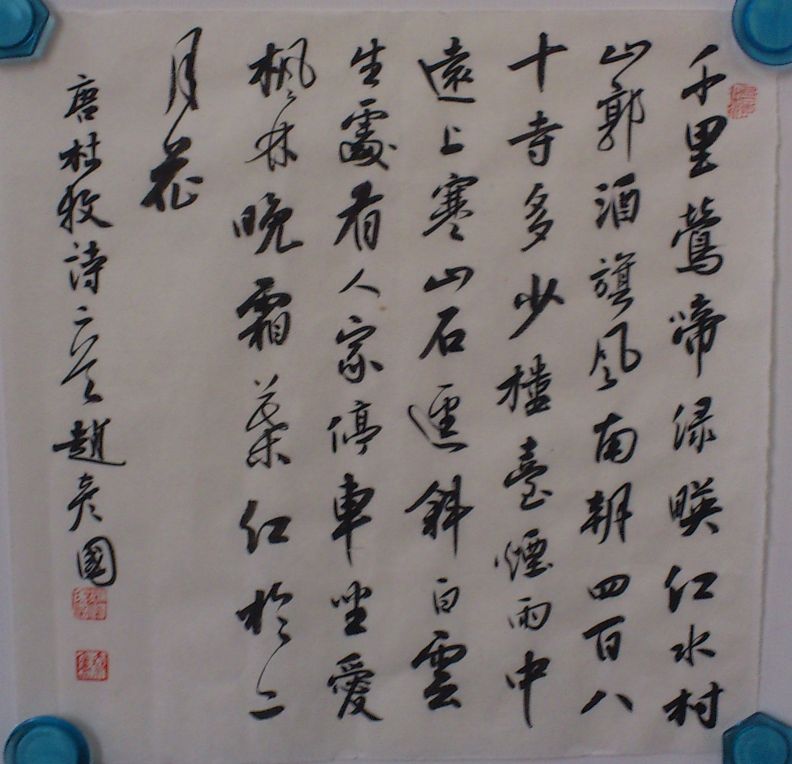 千里鶯啼緑暎紅水村
山郭酒旗風南朝四百八
十寺多少樓臺煙雨中
遠上寒山石逕斜白雲
生處有人家停車坐愛
楓林晚霜葉紅於二
月花
唐杜牧詩二首趙彦國